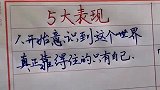 5大表现
1.开始意识到这个世界
真正靠得住的只有自己.